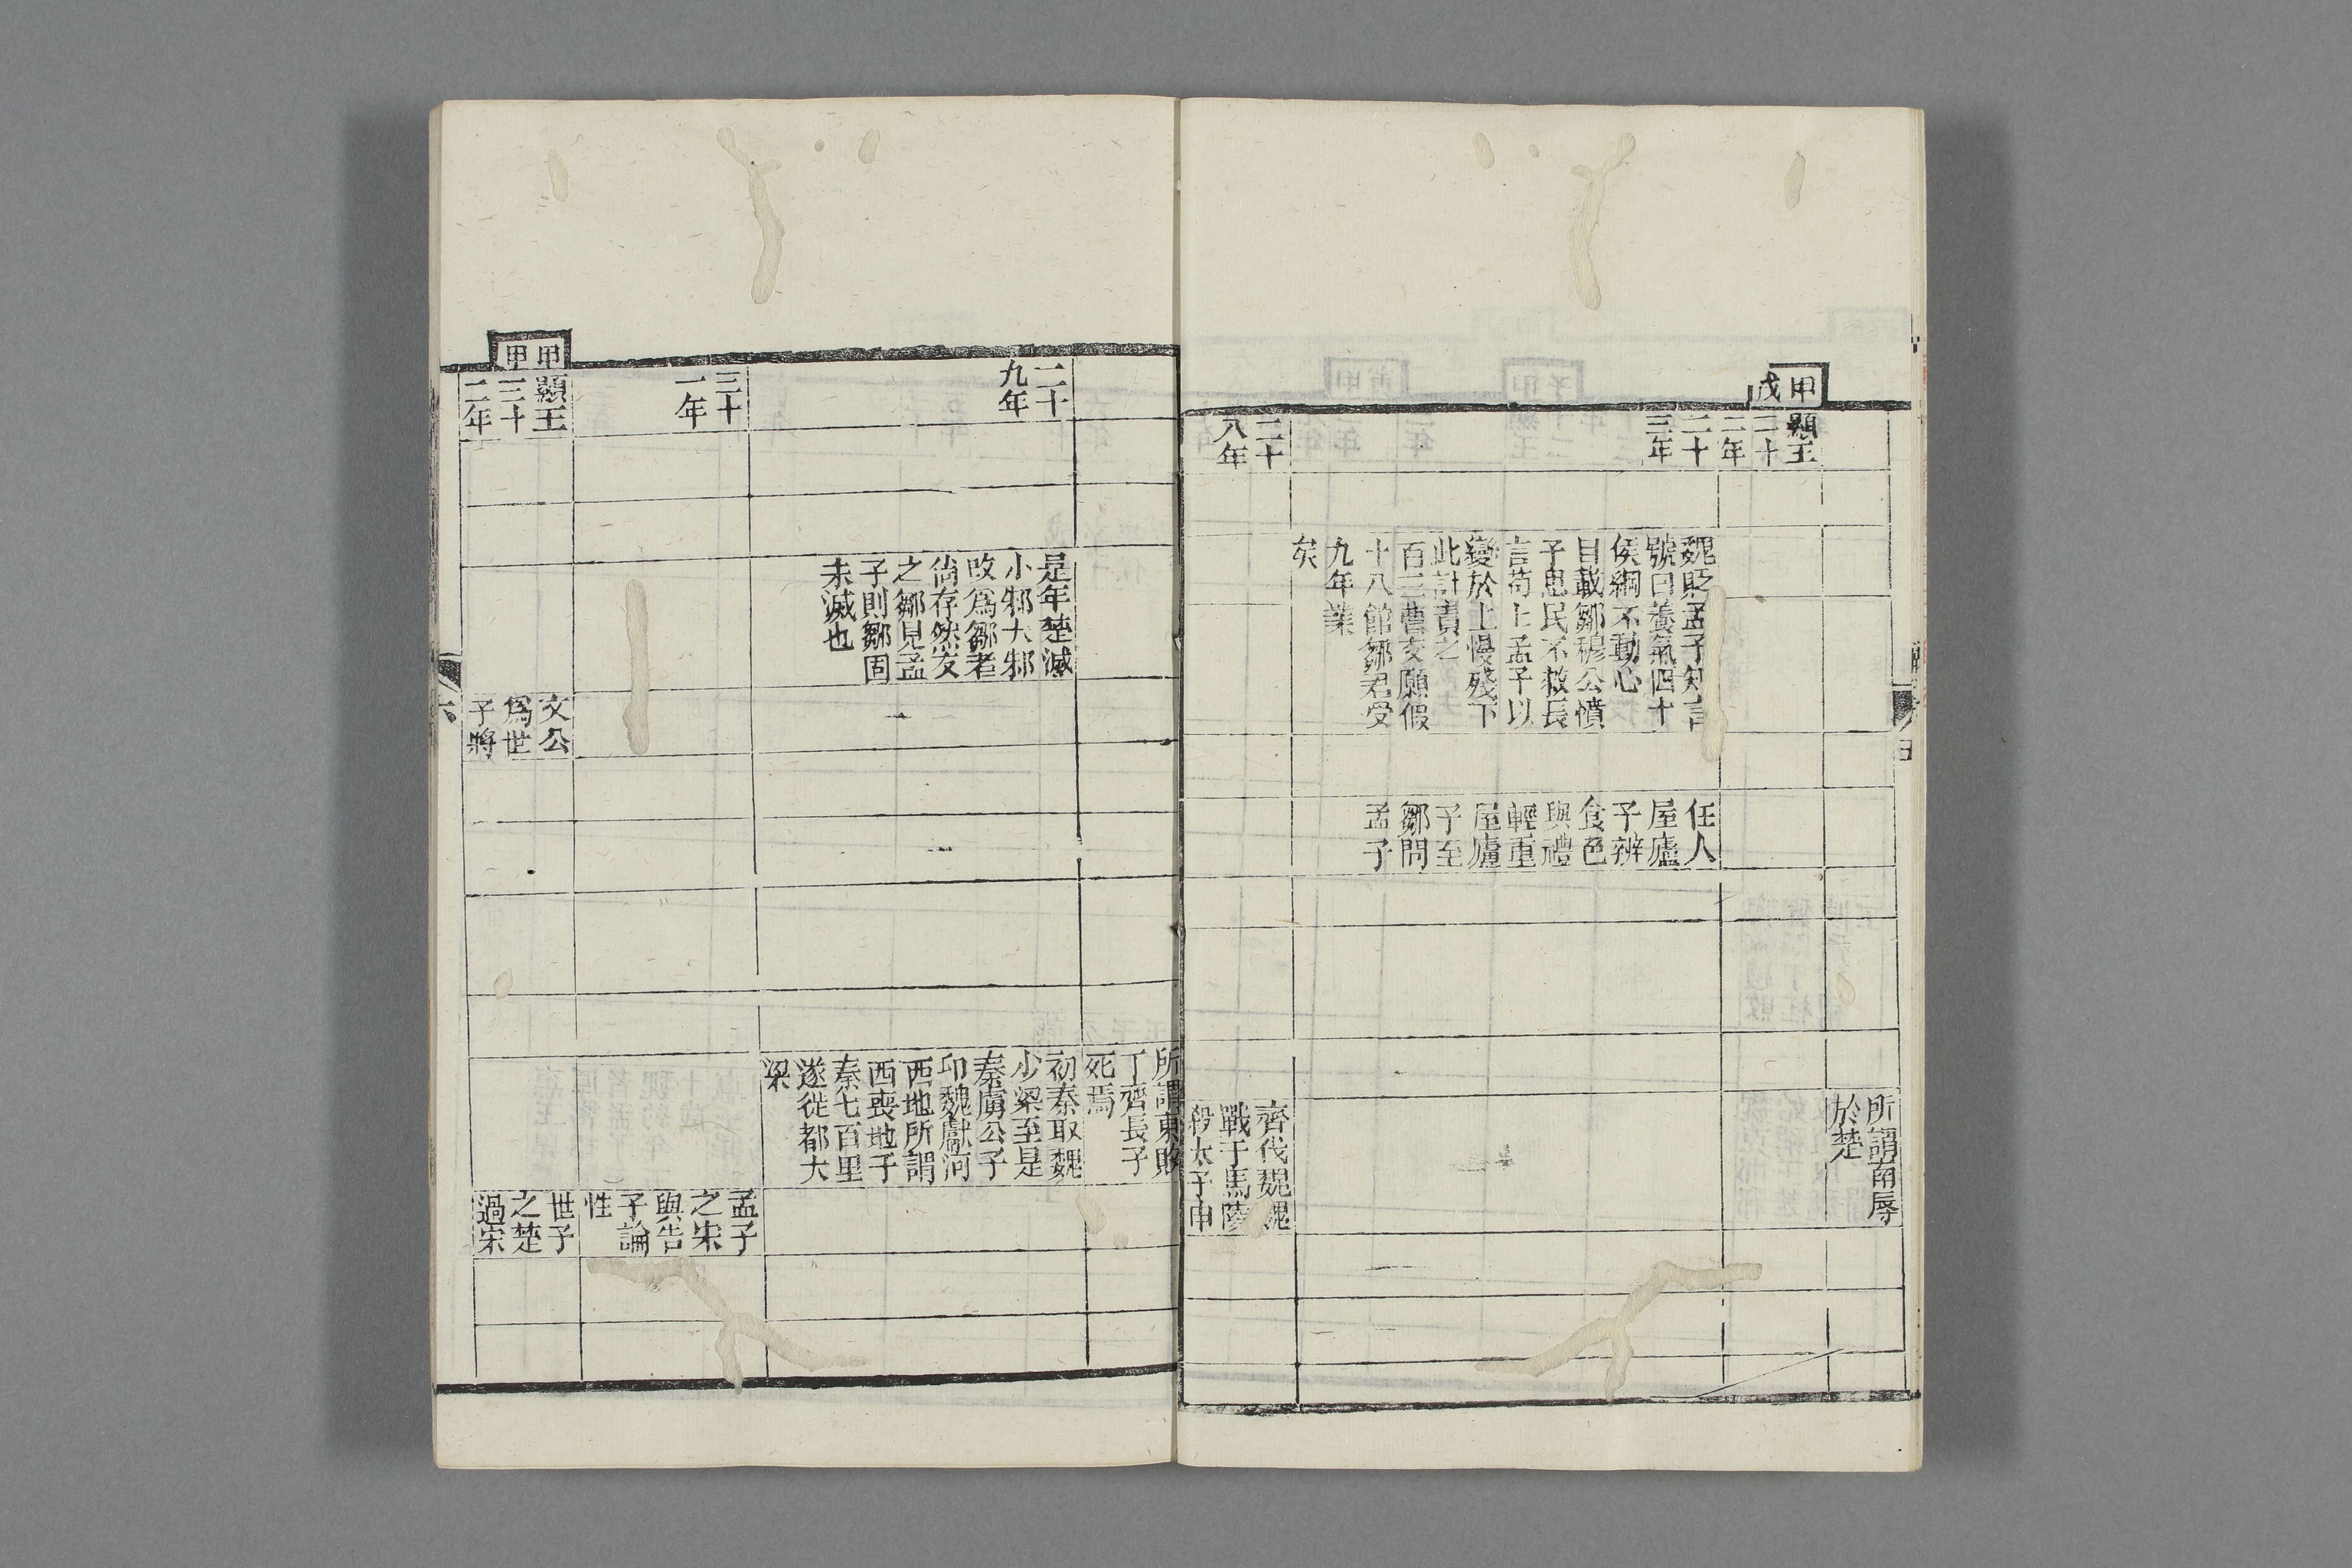 甲
戌
顯王
二十
二年
二十
三年
二十
八年
魏貶孟子知言
號曰養氣四十
侯綱不動心
目載鄒穆公憤
子思民不救長
言苟上孟子以
變於上慢殘下
此計責之
百三曹交願假
十八館鄒君受
九年業
矣
任人
屋廬
子辨
食色
與禮
輕重
屋廬
子至
鄒問
孟子
所謂南辱
於楚
齊伐魏魏
戰于馬陵
殺太子申
五
二十
九年
三十
一年
甲
申
顯王
三十
二年
是年楚滅
小邾大邾
改爲鄒者
尙存然友
之鄒見孟
子則鄒固
未滅也
文公
爲世
子將
所謂東敗
于齊長子
死焉
初秦取魏
少梁至是
秦虜公子
卬魏獻河
西地所謂
西喪地于
秦七百里
遂徙都大
梁
孟子
之宋
與告
子論
性
世子
之楚
過宋
六